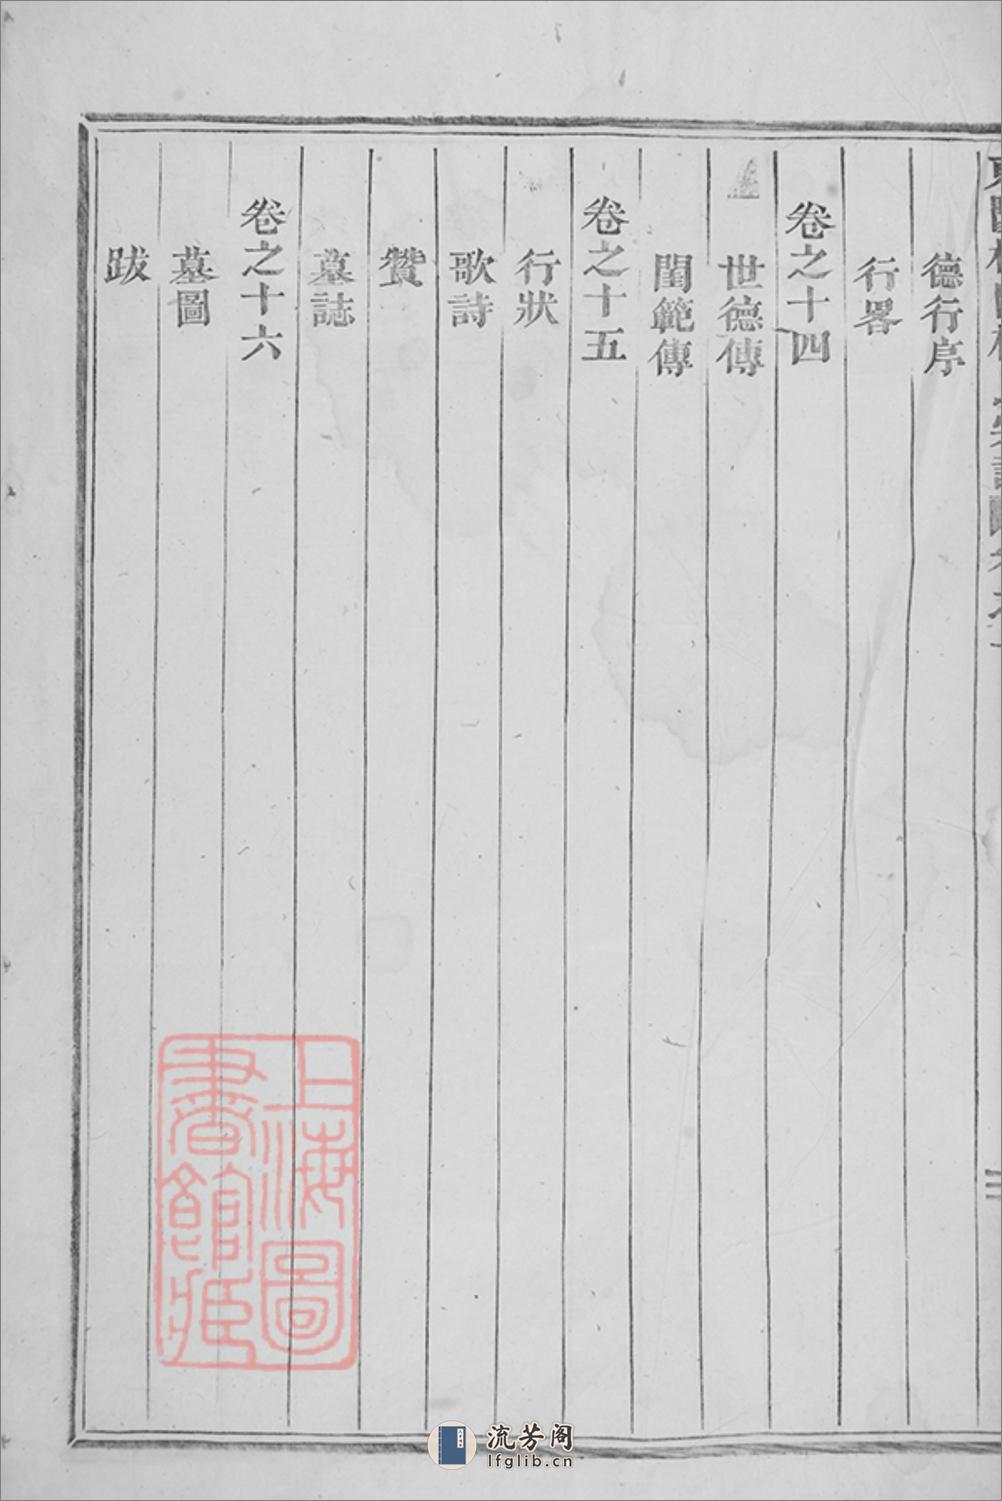 德行序
行畧
卷之十四
世德傳
閨範傳
卷之十五
行狀
歌詩
贊
墓誌
卷之十六
墓圖
跋
上海圖
書館藏
流芳阁
lfglib.cn